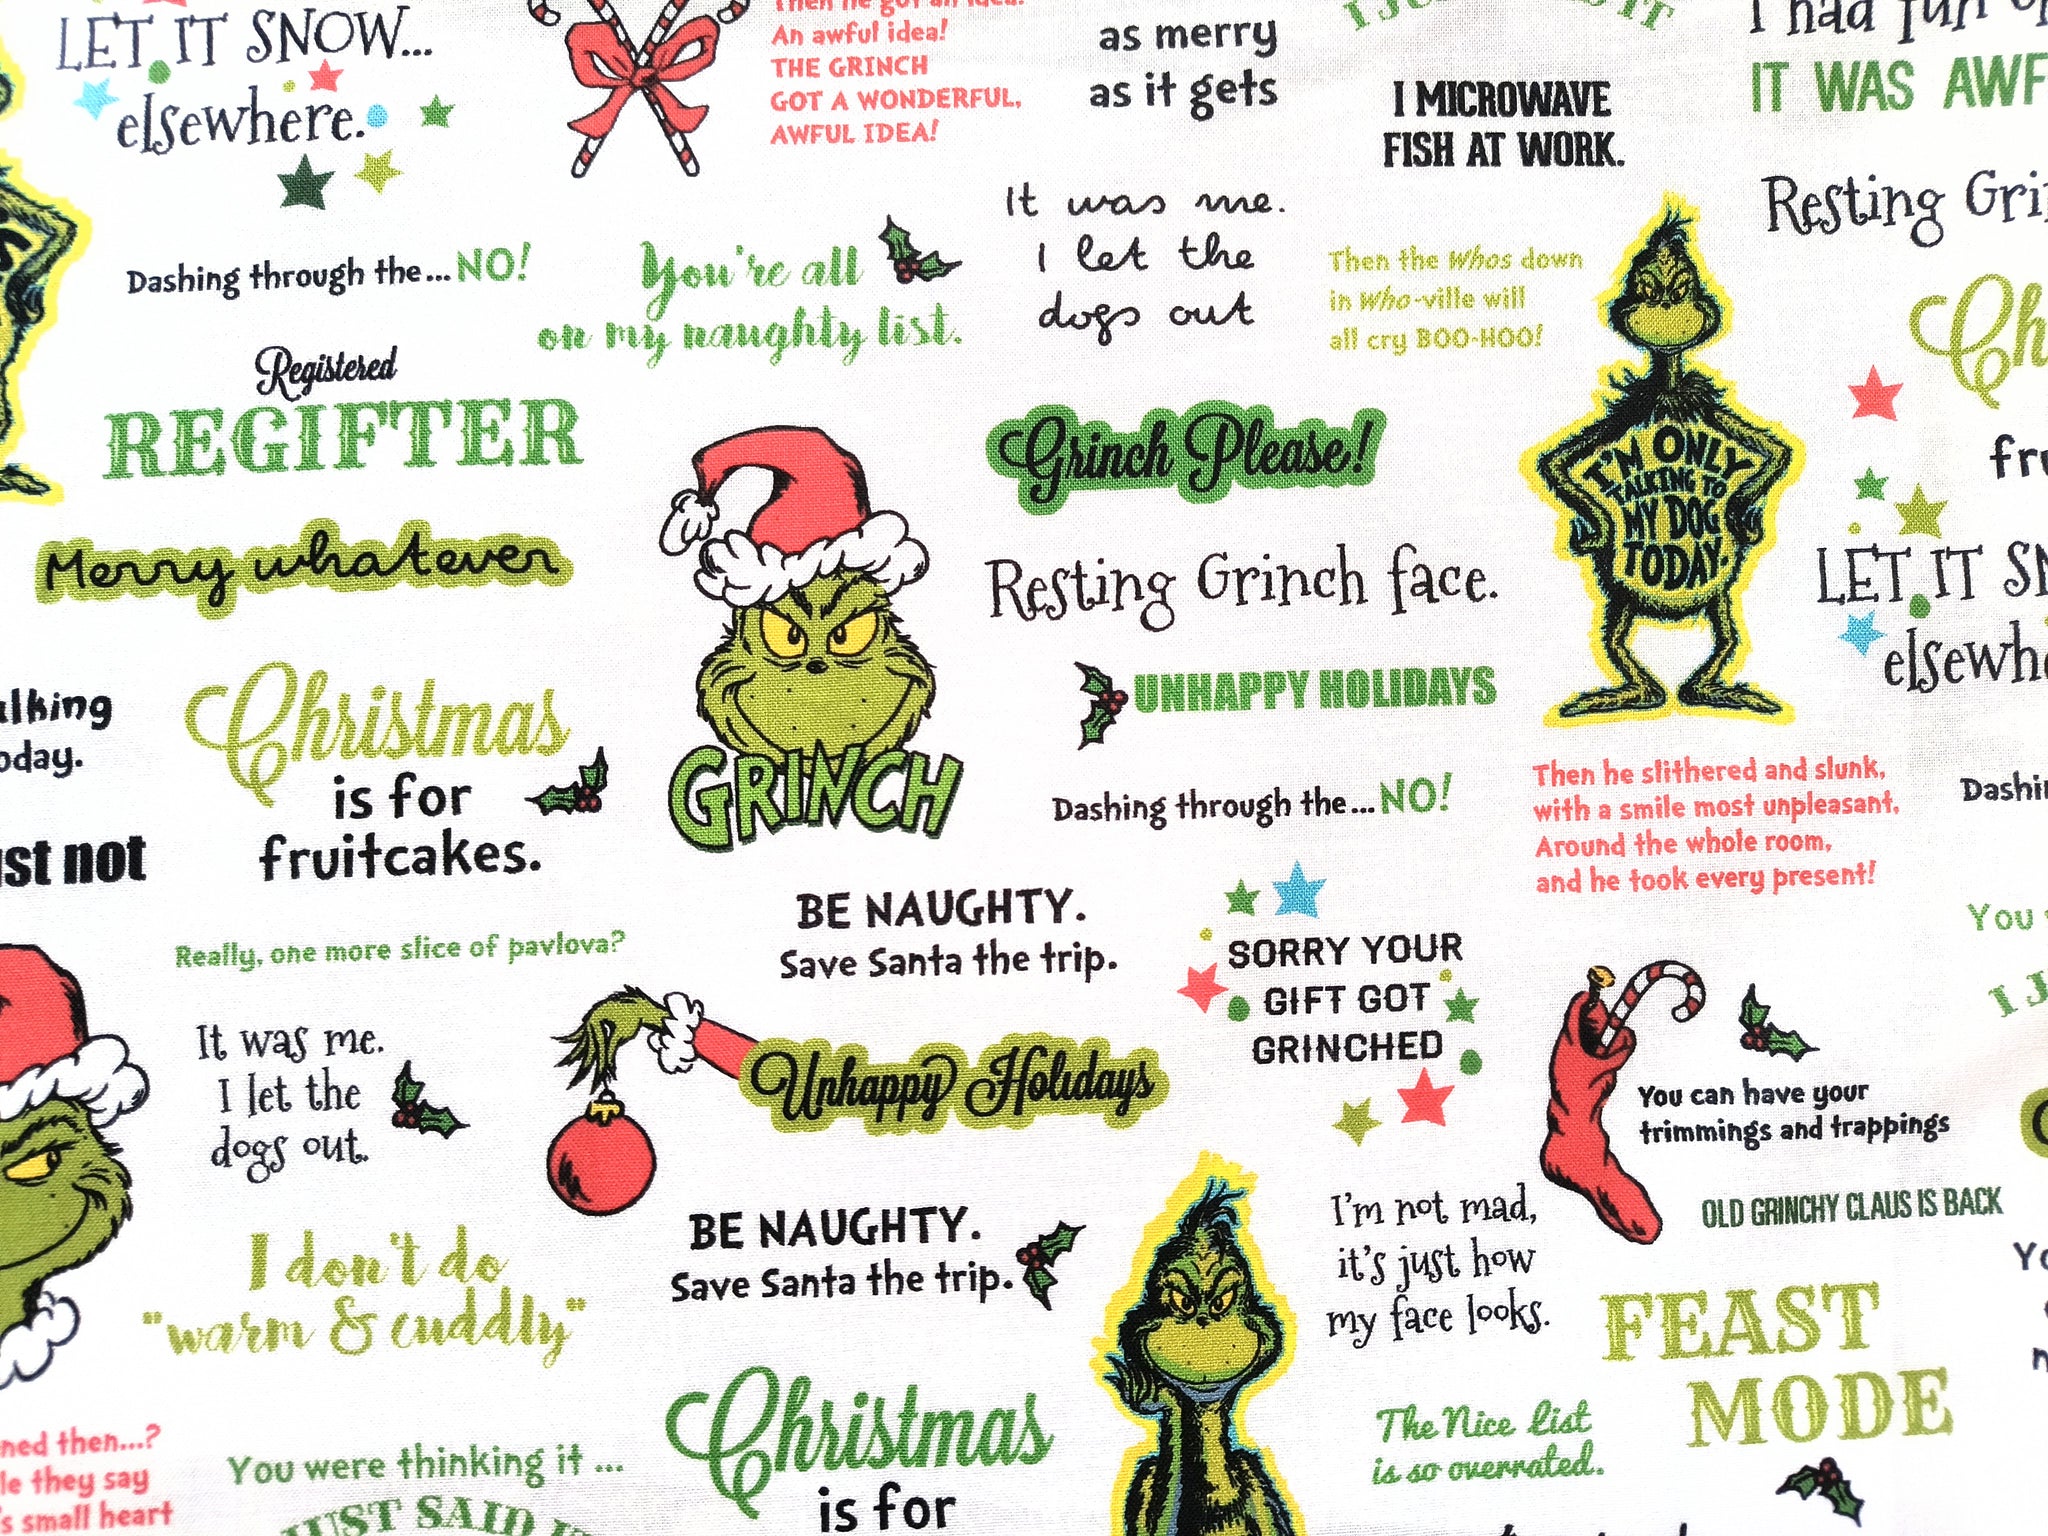 LET IT SNOW...
elsewhere.
Then he got an idea!
An awful idea!
THE GRINCH
GOT A WONDERFUL,
AWFUL IDEA!
as merry
as it gets
I MICROWAVE
FISH AT WORK.
I had fun
IT WAS
Resting
Dashing through the... NO!
You're all
on my naughty list.
It was me.
I let the
dogs out
Then the Whos down
in Who-ville will
all cry BOO-HOO!
Registered
REGIFTER
Merry whatever
Grinch Please!
Resting Grinch face.
I'M ONLY
TALKING TO
MY DOG
TODAY.
LET IT
GRINCH
UNHAPPY HOLIDAYS
Dashing through the... NO!
Christmas
is for
fruitcakes.
not
Then he slithered and slunk,
with a smile most unpleasant,
Around the whole room,
and he took every present!
BE NAUGHTY.
Save Santa the trip.
Really, one more slice of pavlova?
SORRY YOUR
GIFT GOT
GRINCHED
You
It was me.
I let the
dogs out.
Unhappy Holidays
You can have your
trimmings and trappings
OLD GRINCHY CLAUS IS BACK
BE NAUGHTY.
Save Santa the trip.
I'm not mad,
it's just how
my face looks.
I don't do
"warm & cuddly"
FEAST
MODE
The Nice List
is so overrated.
Christmas
is for
then...?
they say
small heart
You were thinking it ...
JUST SAID IT